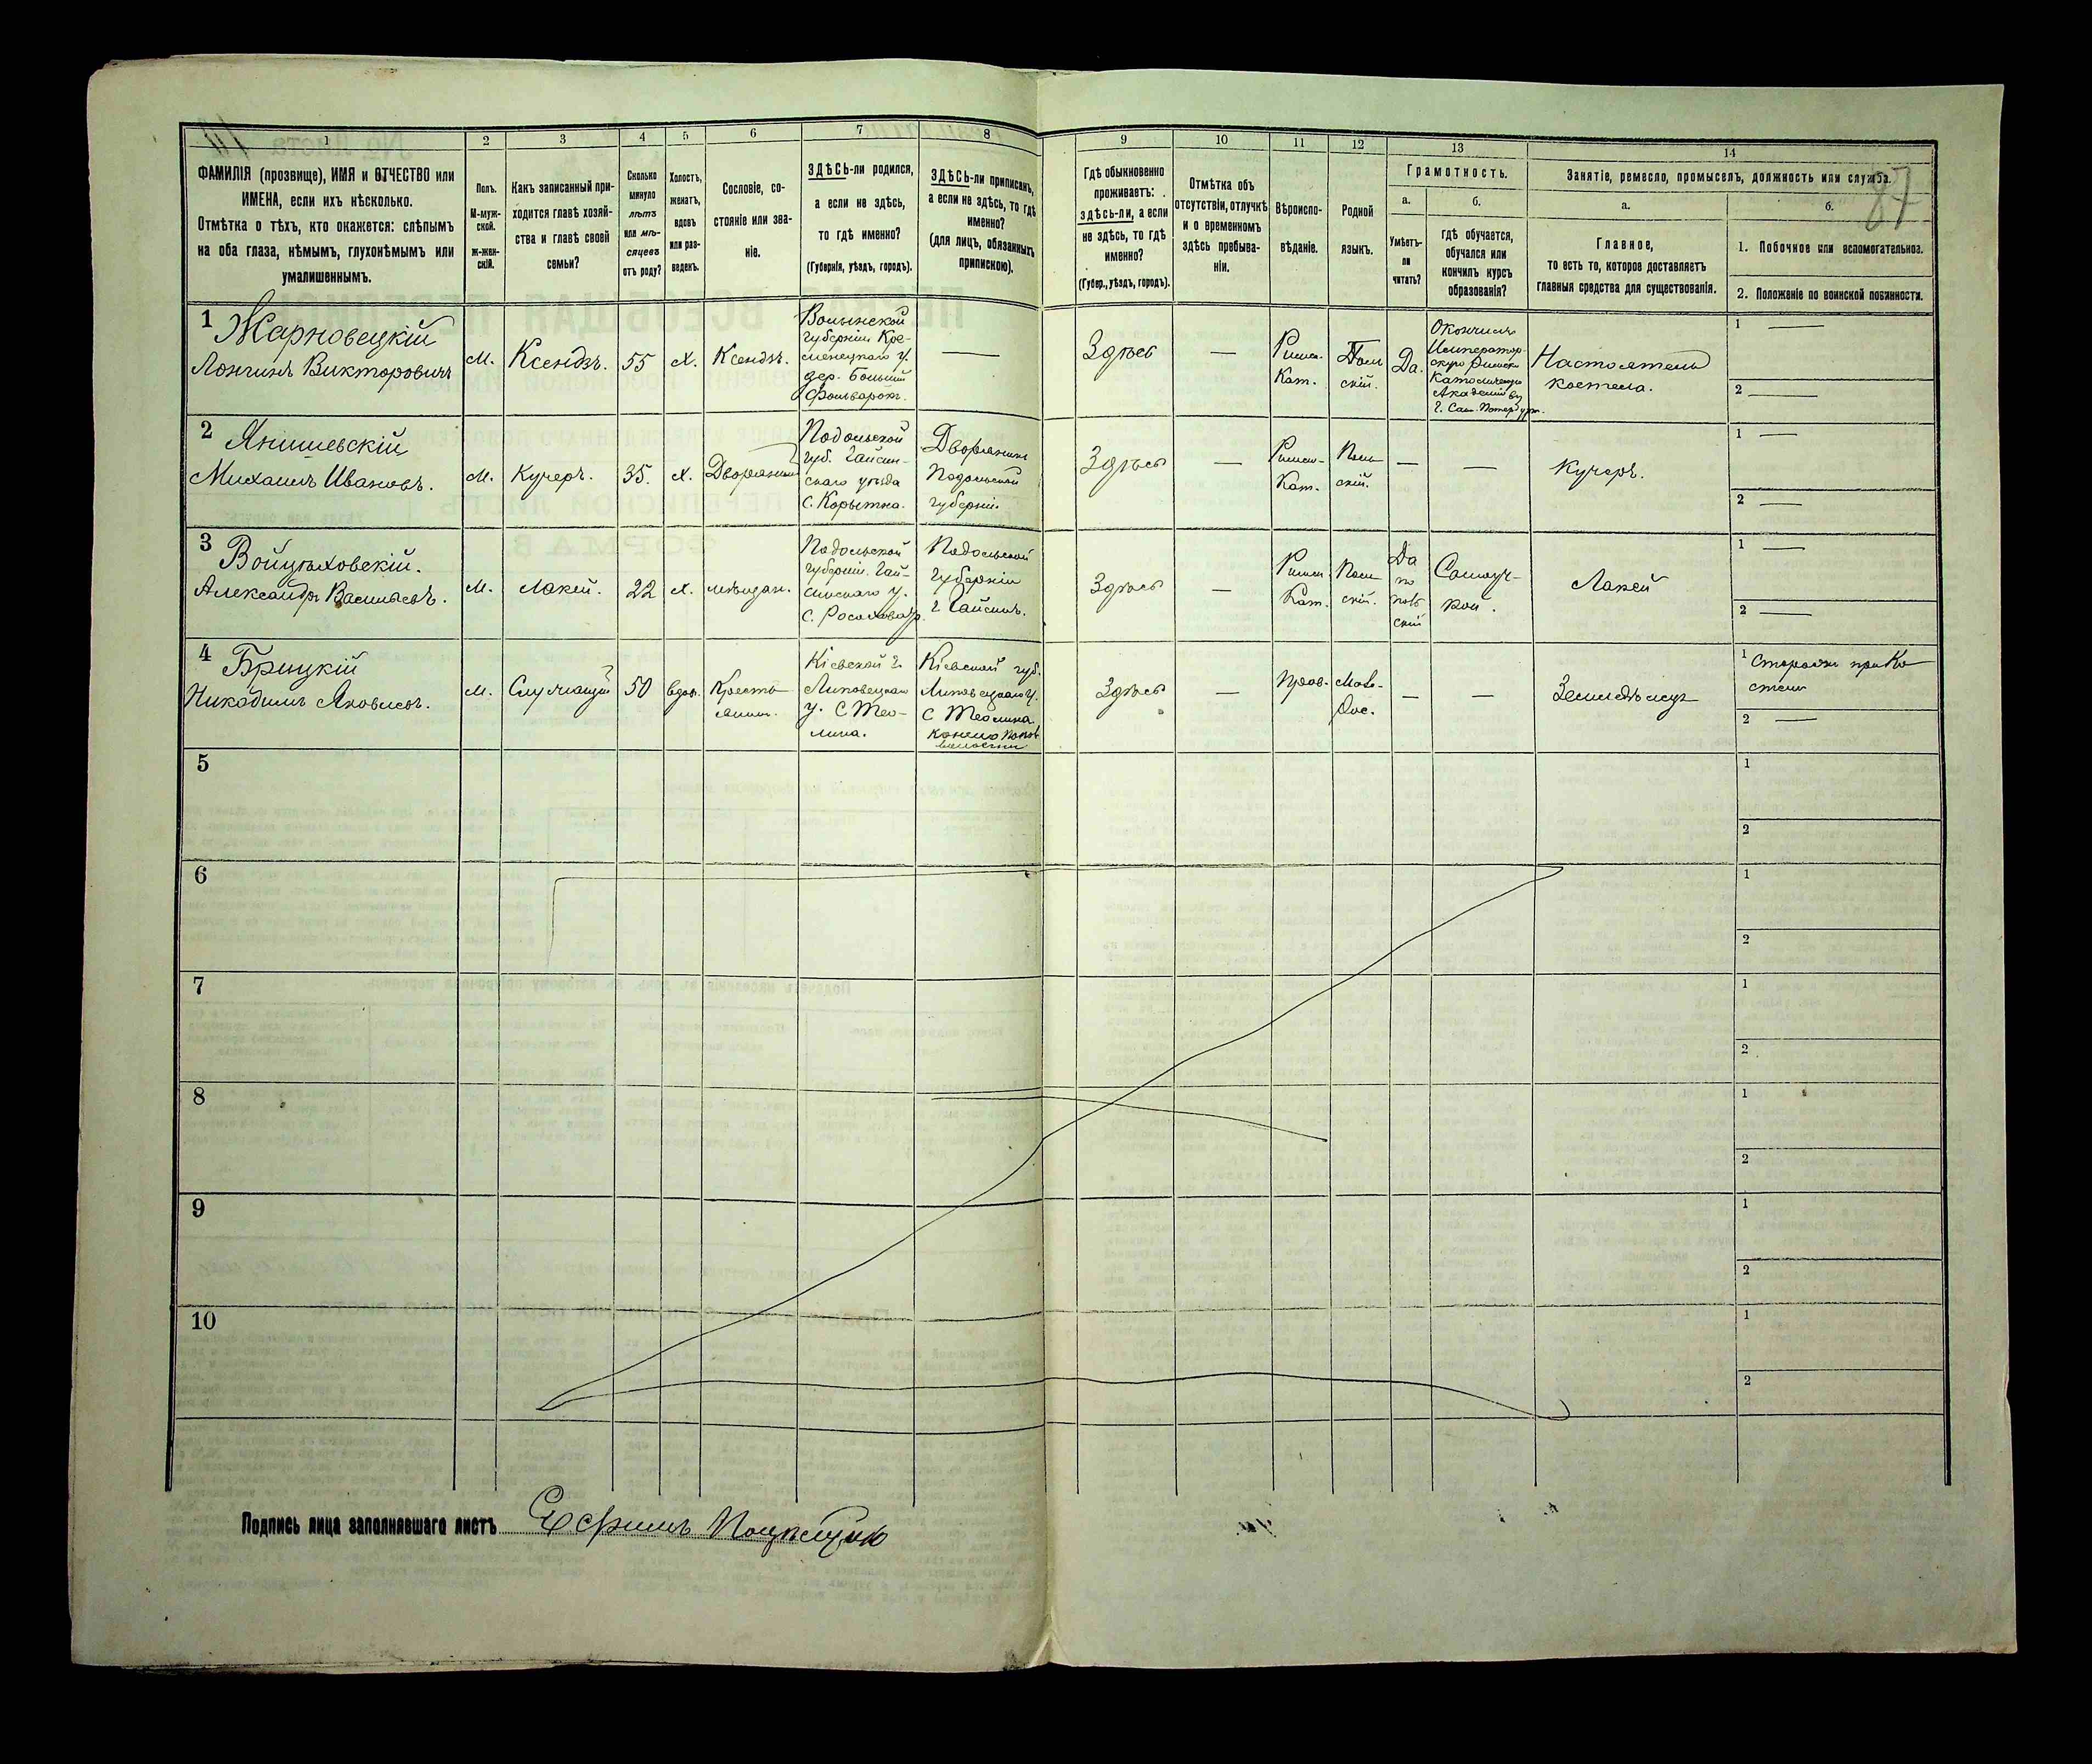 87
1
2
3
4
5
6
7
8
9
10
11
12
13
14
ФАМИЛІЯ (прозвище), ИМЯ и ОТЧЕСТВО или
ИМЕНА, если ихъ нѣсколько.
Отмѣтка о тѣхъ, кто окажется: слѣпымъ
на оба глаза, нѣмымъ, глухонѣмымъ или
умалишеннымъ.
Полъ.
М-муж-
ской.
ж-жен-
скій.
Какъ записанный при-
ходится главѣ хозяй-
ства и главѣ своей
семьи?
Сколько
минуло
лѣтъ
или мѣ-
сяцевъ
отъ роду?
Холостъ,
женатъ,
вдовъ
или раз-
веденъ.
Сословіе, со-
стояніе или зва-
ніе.
ЗДѢСЬ-ли родился,
а если не здѣсь,
то гдѣ именно?
(Губернія, уѣздъ, городъ).
ЗДѢСЬ-ли приписанъ,
а если не здѣсь, то гдѣ
именно?
(для лицъ, обязанныхъ
припискою).
Гдѣ обыкновенно
проживаетъ:
здѣсь-ли, а если
не здѣсь, то гдѣ
именно?
(Губер., уѣздъ, городъ).
Отмѣтка объ
отсутствіи, отлучкѣ
и о временномъ
здѣсь пребыва-
ніи.
Вѣроиспо-
вѣданіе.
Родной
языкъ.
Грамотность.
а.
Умѣетъ-
ли
читать?
б.
Гдѣ обучается,
обучался или
кончилъ курсъ
образованія?
Занятіе, ремесло, промыселъ, должность или служба.
а.
Главное,
то есть то, которое доставляетъ
главныя средства для существованія.
б.
1. Побочное или вспомогательное.
2. Положеніе по воинской повинности.
1
Жарновецкій
Лонгинъ Викторовичъ
М.
Ксендзъ.
55
Х.
Ксендзъ.
Волынской
губерніи Кре-
менецкаго у.
дер. Большій
Фольварокъ.
—
Здѣсь
—
Римск.
Кат.
Поль
скій.
Да.
Окончилъ
Император-
скую Римско
Католическую
Академію въ
г. Сан. Петербургѣ.
Настоятель
костела.
1 —
2 —
2
Янишевскій
Михаилъ Ивановъ.
М.
Кучеръ.
35.
Х.
Дворянинъ
Подольской
губ. Гайсин-
скаго уѣзда
с. Корытна.
Дворянинъ
Подольской
губерніи.
Здѣсь
—
Римско-
Кат.
Поль
скій.
—
—
Кучеръ.
1 —
2 —
3
Войцѣховскій.
Александръ Васильевъ.
М.
Лакей.
22
Х.
мѣщан.
Подольской
губерніи. Гай-
синскаго у.
Подольской
губерніи
г. Гайсинъ.
Здѣсь
—
Римск.
Кат.
Поль
скій.
Да
по
поль
скій
Самоуч-
кой.
Лакей
1 —
2 —
4
Брицкій
Никодимъ Яковлевъ.
М.
Служащій
50
вдов.
Кресть
янин.
Кіевской г.
Липовецкаго
у. С Тео-
лина.
Кіевской губ.
Липовецкаго у.
С Теолина.
волости
Здѣсь
—
Прав.
Мало-
Рос.
—
—
Земледѣлецъ
1 Сторожъ при Ко
стелѣ
2 —
5
1
2
6
1
2
7
1
2
8
1
2
9
1
2
10
1
2
Подпись лица заполнявшаго листъ